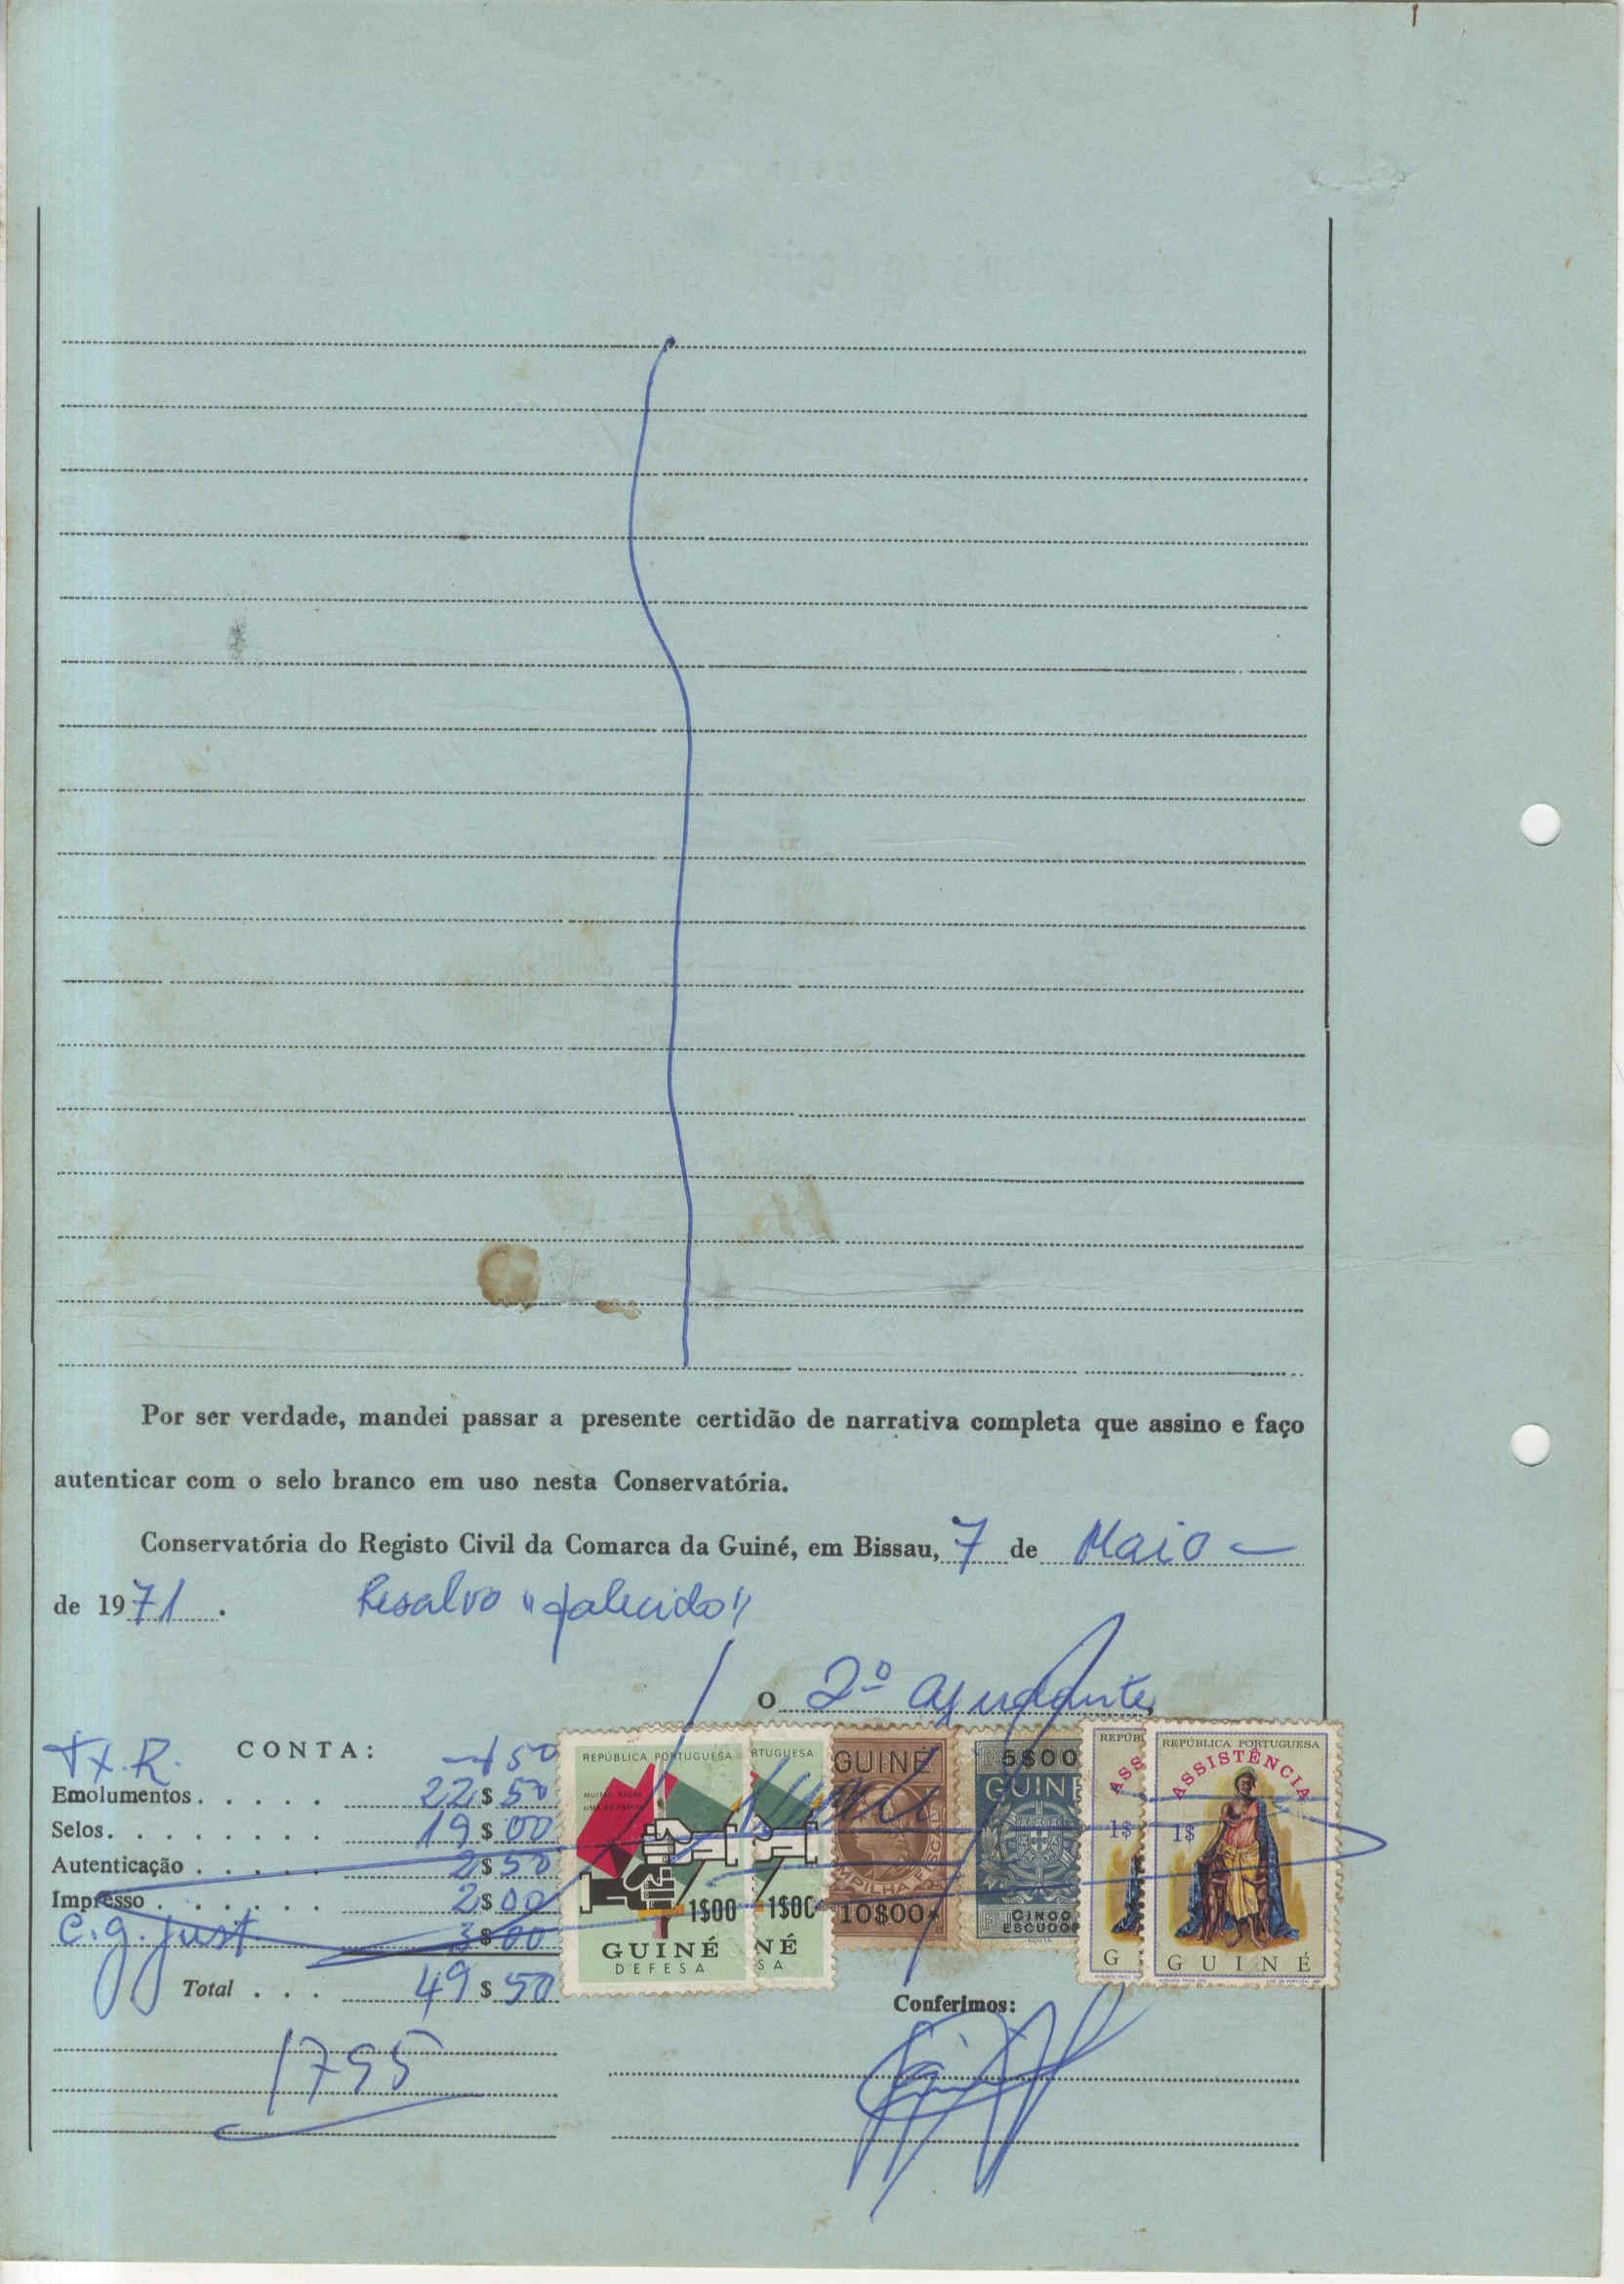 Por ser verdade, mandei passar a presente certidão de narrativa completa que assino e faço
autenticar com o selo branco em uso nesta Conservatória.
Conservatória do Registo Civil da Comarca da Guiné, em Bissau, 7 de Maio —
de 1971.
Resalvo "falecido"
O 2º ajudante,
Tx. R. CONTA: 50
Emolumentos . . . . . 22$50
Selos. . . . . . . . . 19$00
Autenticação . . . . . 2$50
Impresso . . . . . . 2$00
C. g. Just 3$00
Total . . . 49$50
1795
REPÚBLICA PORTUGUESA
1$00
GUINÉ
DEFESA
RTUGUESA
1$00
NÉ
SA
GUINÉ
10$00
5$00
GUINÉ
CINCO
ESCUDOS
REPÚB
ASS
1$
G
REPÚBLICA PORTUGUESA
ASSISTÊNCIA
1$
GUINÉ
Conferimos: